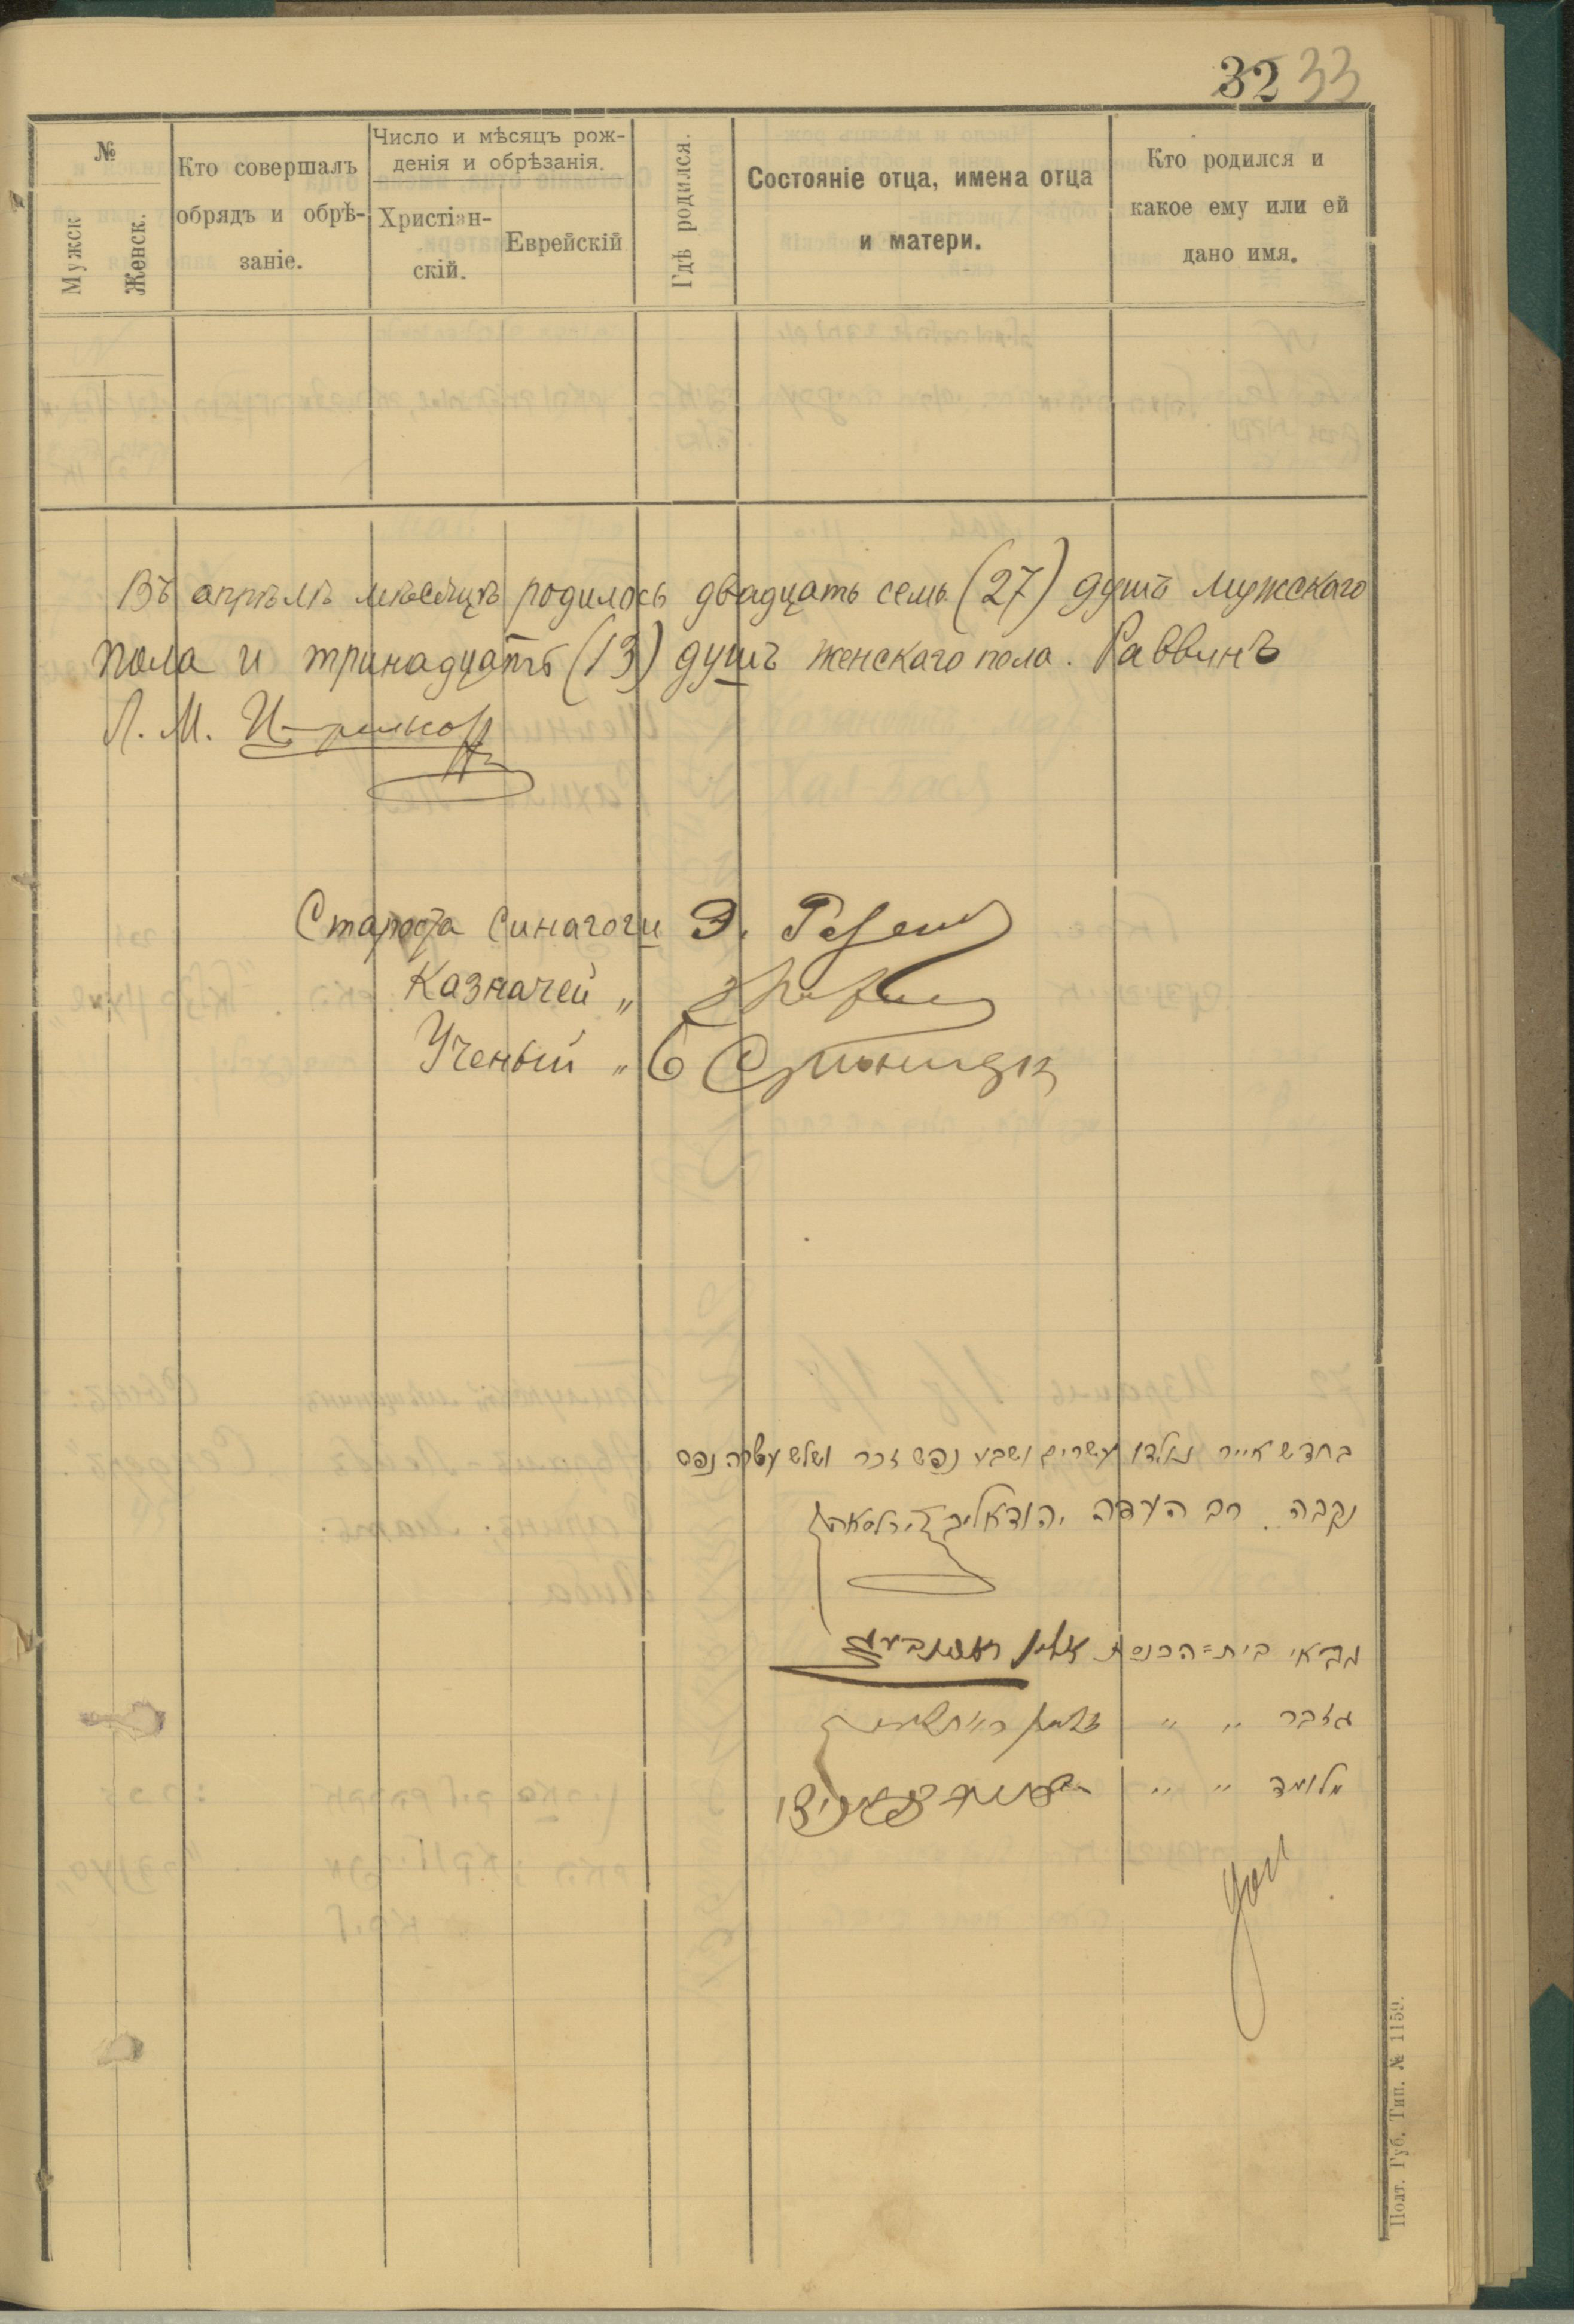 32 33
№
Мужск
Женск.
Кто совершалъ
обрядъ и обрѣ-
заніе.
Число и мѣсяцъ рож-
денія и обрѣзанія.
Христіан-
скій.
Еврейскій
Гдѣ родился.
Состояніе отца, имена отца
и матери.
Кто родился и
какое ему или ей
дано имя.
Въ апрѣлѣ мѣсяцѣ родилось двадцать семь (27) душъ мужскаго
пола и тринадцать (13) душъ женскаго пола. Раввинъ
Л. М.
Староста Синагоги Э.
Казначей „
Ученый „
בחדש אייר נולדו עשרים ושבע נפש זכר ושלש עשרה נפש
נקבה. רב העדה
גבאי בית=הכנסת
גזבר „ „
מלומד „ „
Полт. Губ. Тип. № 1159.